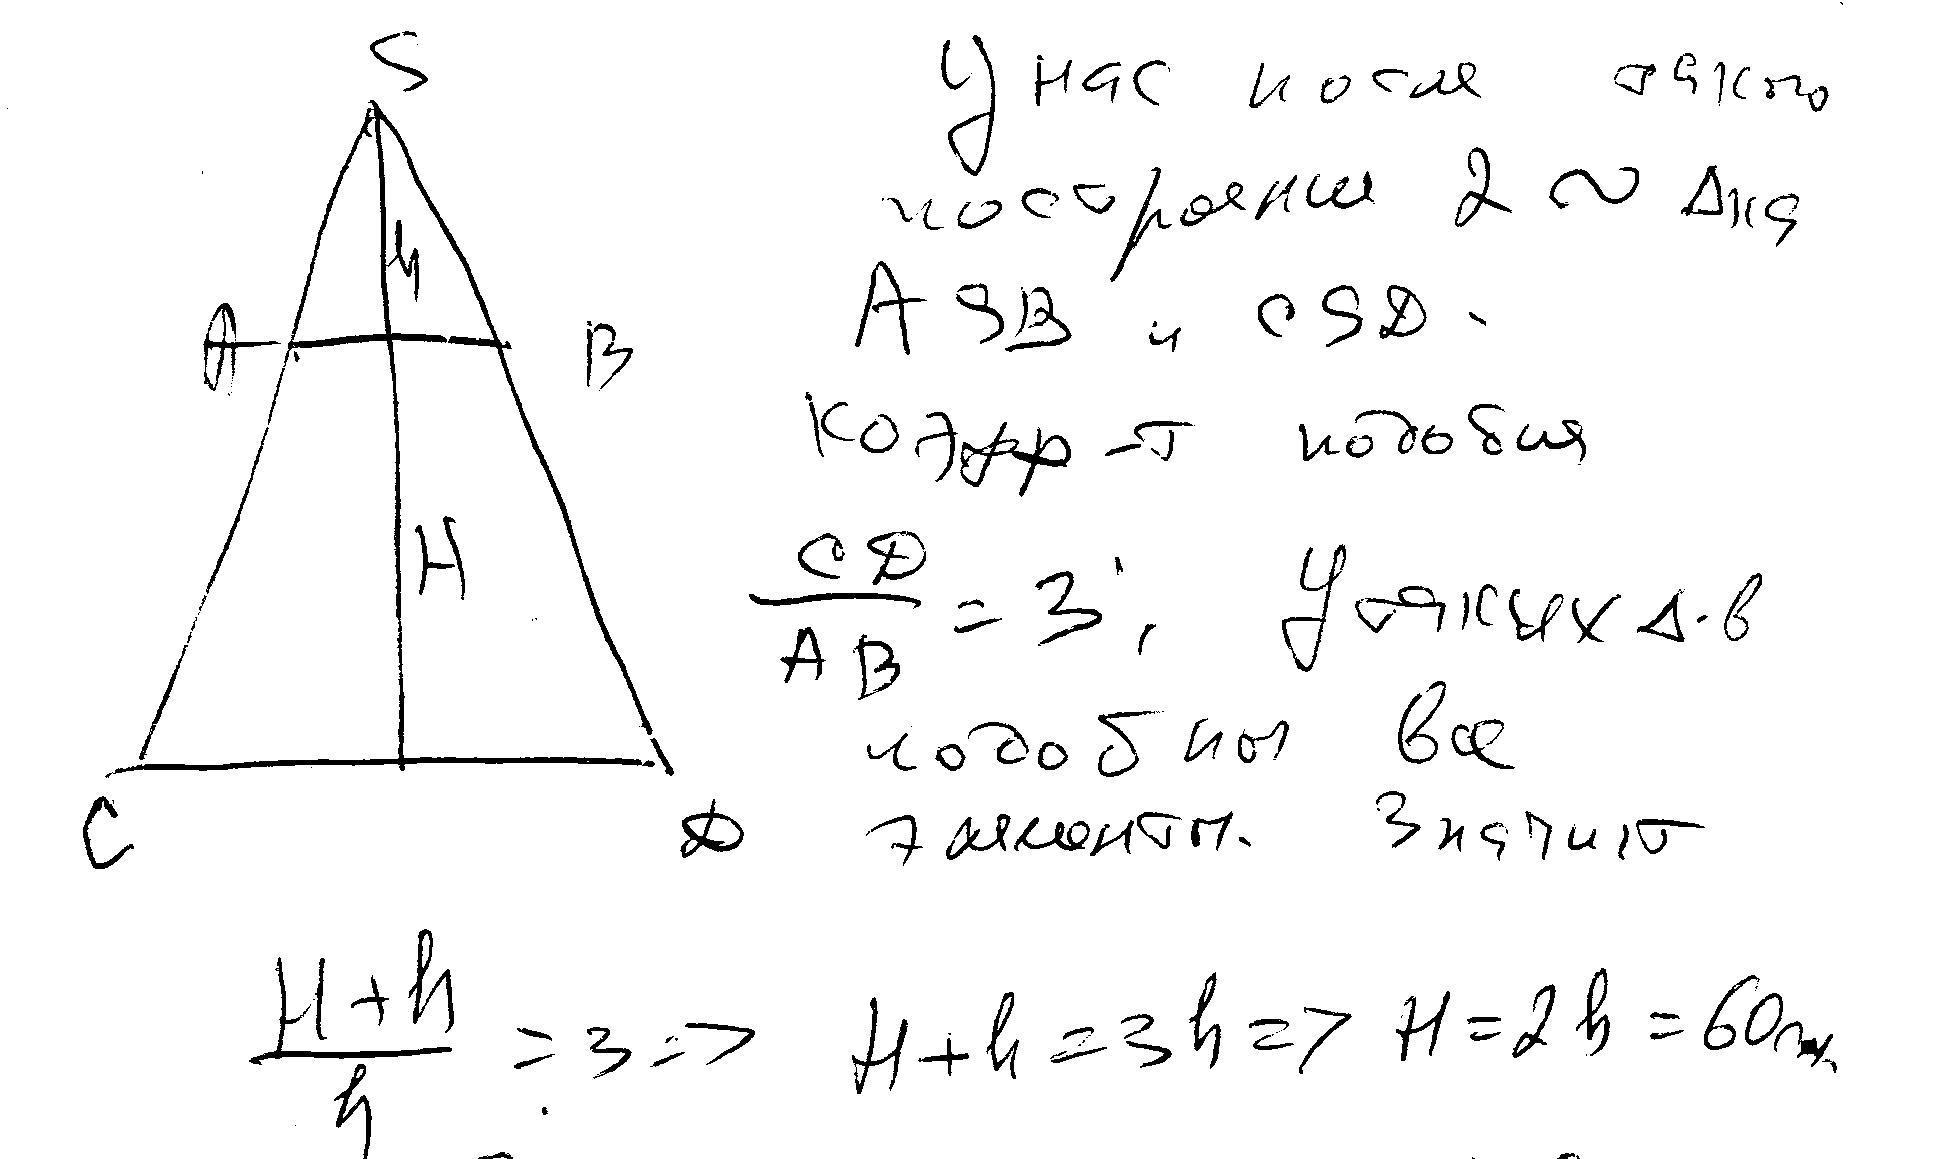 S
У нас после такого
построения 2 ~ Δка
ASB и CSD.
h
A
B
коэфф-т подобия
CD/AB = 3; У таких Δ-в
H
подобны все
C
D
элементы. Значит
(H+h)/h = 3 => H+h=3h => H=2h=60м